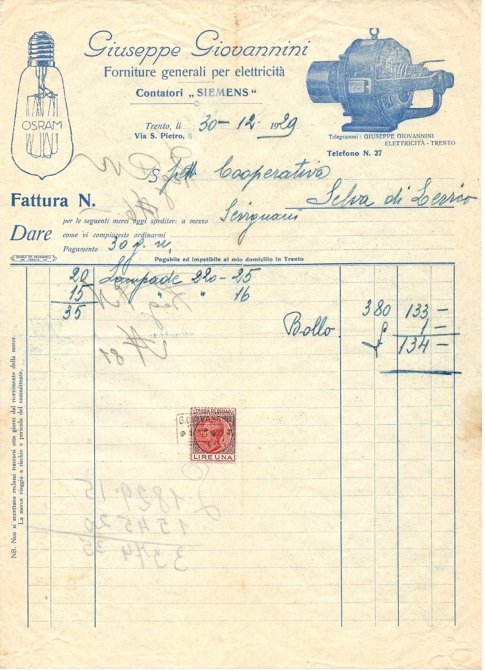 Giuseppe Giovannini
Forniture generali per elettricità
Contatori „SIEMENS"
OSRAM
Trento, li 30-12-1929
Via S. Pietro,
Telegrammi: GIUSEPPE GIOVANNINI
ELETTRICITÀ - TRENTO
Telefono N. 27
Spett. Cooperativa
Selva di
Fattura N.
per le seguenti merci oggi spedite: a mezzo
Dare come vi compiaceste ordinarmi
Pagamento 30 g.
Pagabile ed impetibile al mio domicilio in Trento
20 Lampade 220-25
15 " " 16
35 380 133 —
Bollo 1 —
£ 134 —
GIOVANNINI
LIRE UNA
NB. Non si accettano reclami trascorsi otto giorni dal ricevimento della merce.
La merce viaggia a rischio e pericolo del committente.
1829.15
1545.20
3374.35